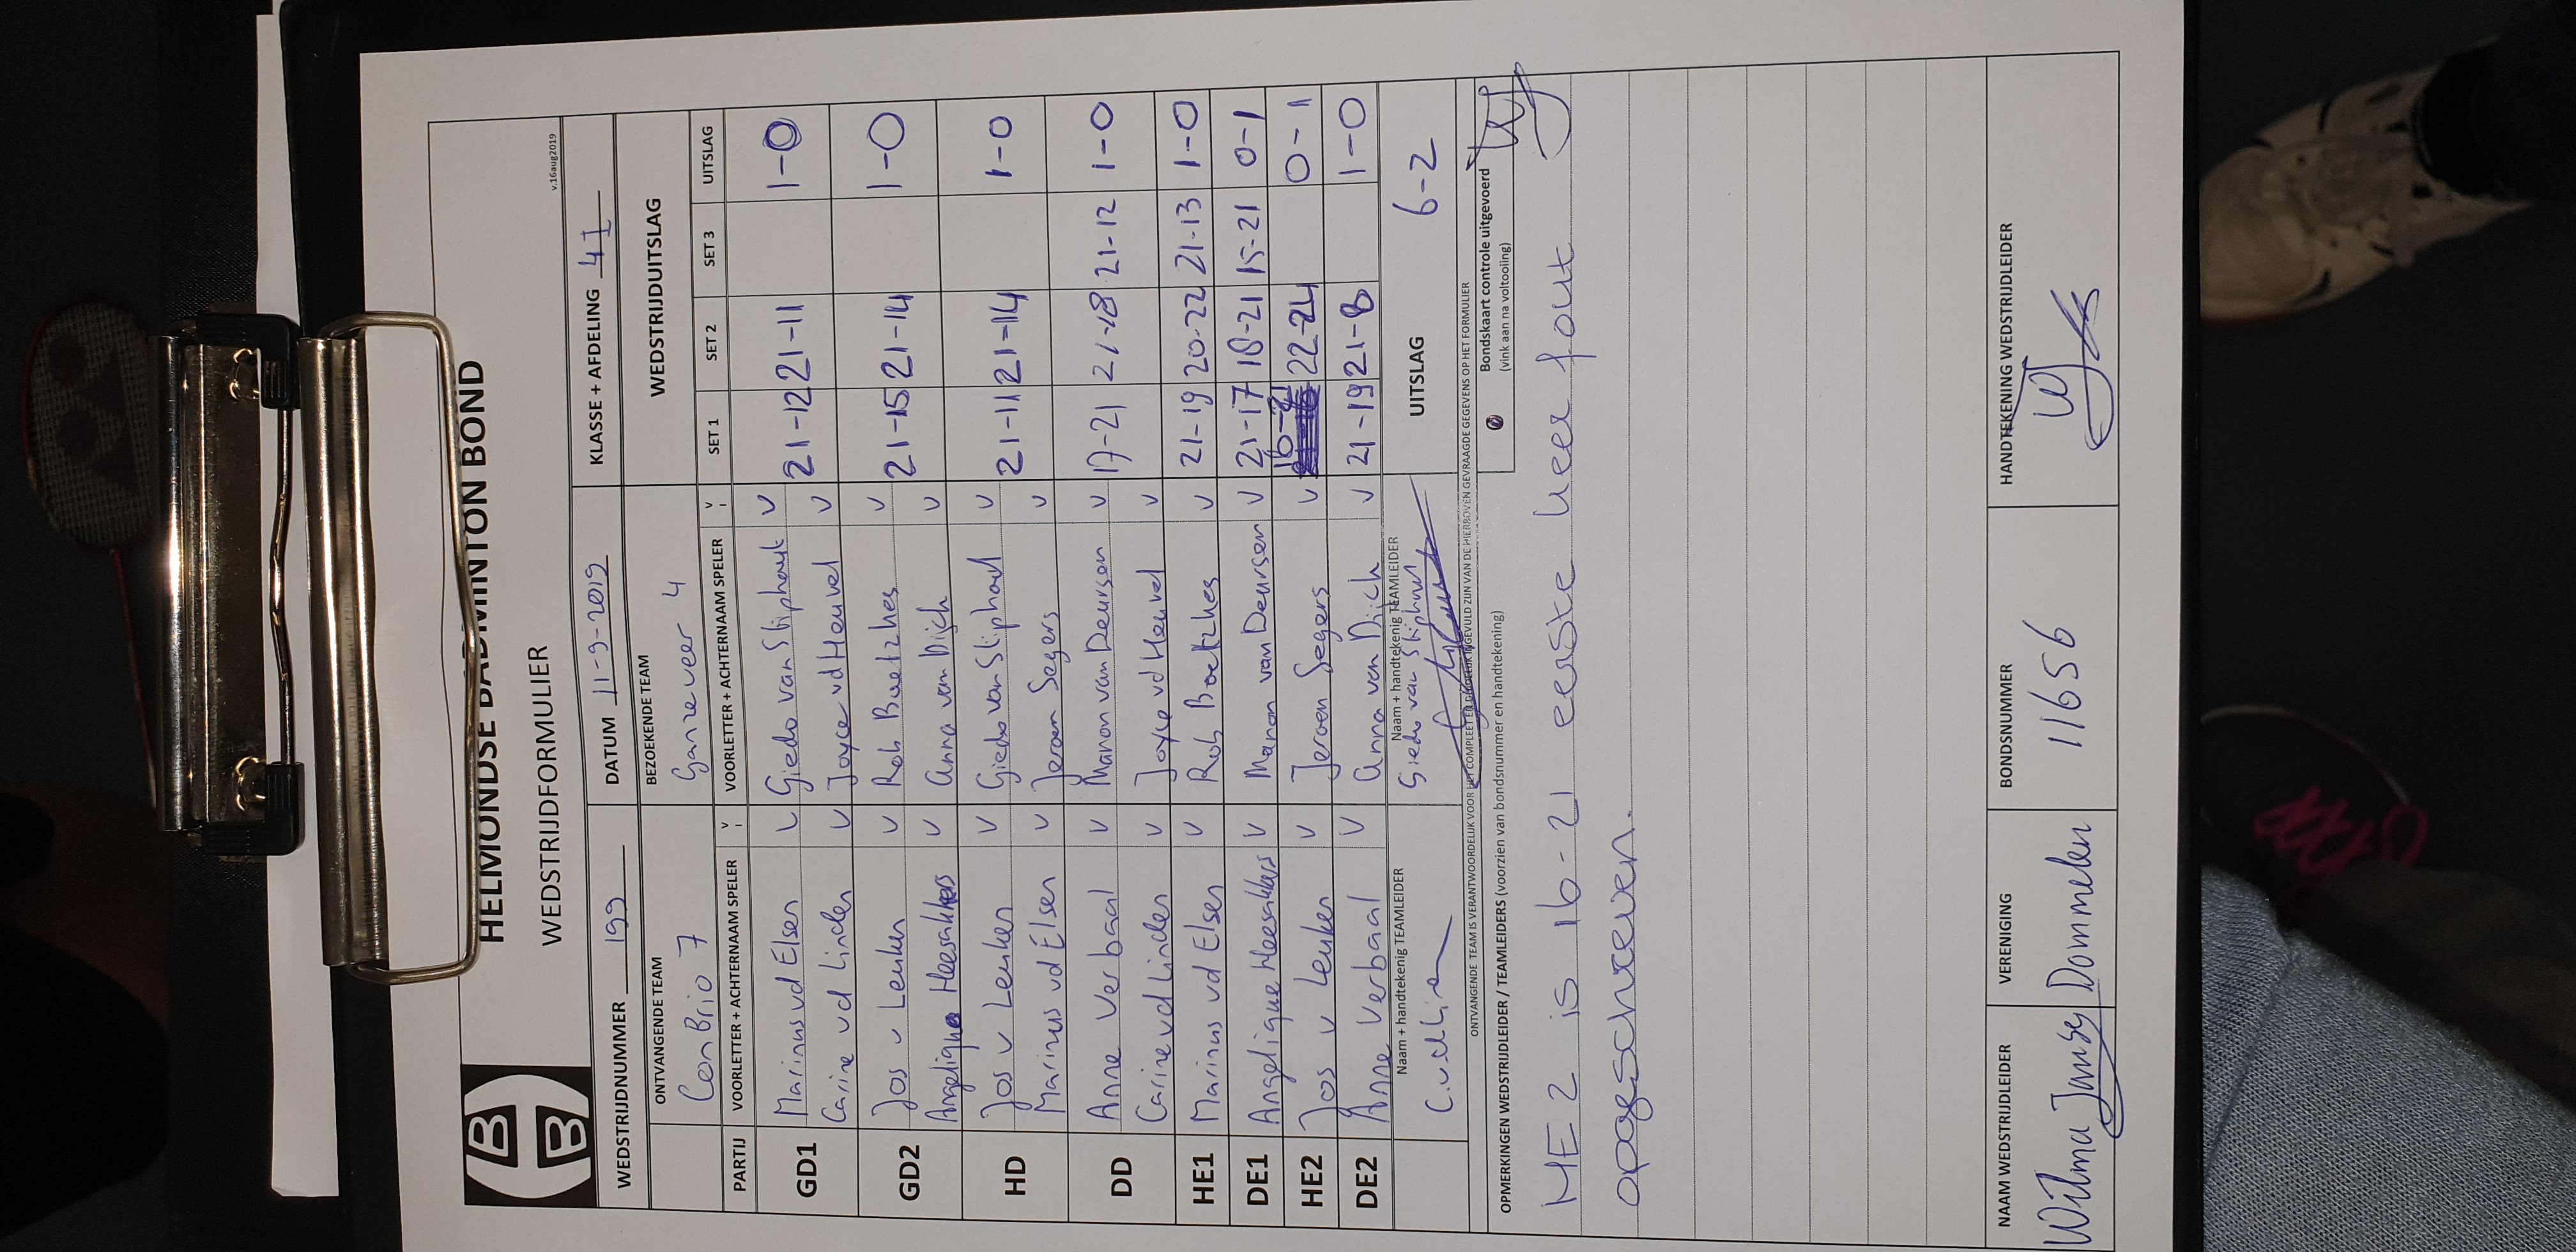 HELMONDSE BADMINTON BOND
WEDSTRIJDFORMULIER
v.16aug2019
WEDSTRIJDNUMMER 199 DATUM 11-9-2019 KLASSE + AFDELING 4I
ONTVANGENDE TEAM BEZOEKENDE TEAM WEDSTRIJDUITSLAG
Con Brio 7 Ganzeveer 4
PARTIJ VOORLETTER + ACHTERNAAM SPELER V VOORLETTER + ACHTERNAAM SPELER V SET 1 SET 2 SET 3 UITSLAG
GD1 Marinus vd Elsen V Giedo van Stiphout V 21-12 21-11 1-0
Carine vd Linden V Joyce vd Heuvel V
GD2 Jos v Leuken V Rob V 21-15 21-14 1-0
Angelique Heesakkers V Anna van Dijck V
HD Jos v Leuken V Giedo van Stiphout V 21-11 21-14 1-0
Marinus vd Elsen V Jeroen Segers V
DD Anne Verbaal V Manon van Deursen V 17-21 21-18 21-12 1-0
Carine vd Linden V Joyce vd Heuvel V
HE1 Marinus vd Elsen V Rob V 21-19 20-22 21-13 1-0
DE1 Angelique Heesakkers V Manon van Deursen V 21-17 18-21 15-21 0-1
HE2 Jos v Leuken V Jeroen Segers V 16-21 22-24 0-1
DE2 Anne Verbaal V Anna van Dijck V 21-19 21-8 1-0
Naam + handtekenig TEAMLEIDER Naam + handtekenig TEAMLEIDER UITSLAG 6-2
Giedo van Stiphout
ONTVANGENDE TEAM IS VERANTWOORDELIJK VOOR HET COMPLEET EN DUIDELIJK INGEVULD ZIJN VAN DE HIERBOVEN GEVRAAGDE GEGEVENS OP HET FORMULIER
OPMERKINGEN WEDSTRIJDLEIDER / TEAMLEIDERS (voorzien van bondsnummer en handtekening)
Bondskaart controle uitgevoerd
(vink aan na voltooiing)
HE 2 is 16-21 eerste keer fout
opgeschreven.
NAAM WEDSTRIJDLEIDER VERENIGING BONDSNUMMER HANDTEKENING WEDSTRIJDLEIDER
Wilma Dommelen 11656